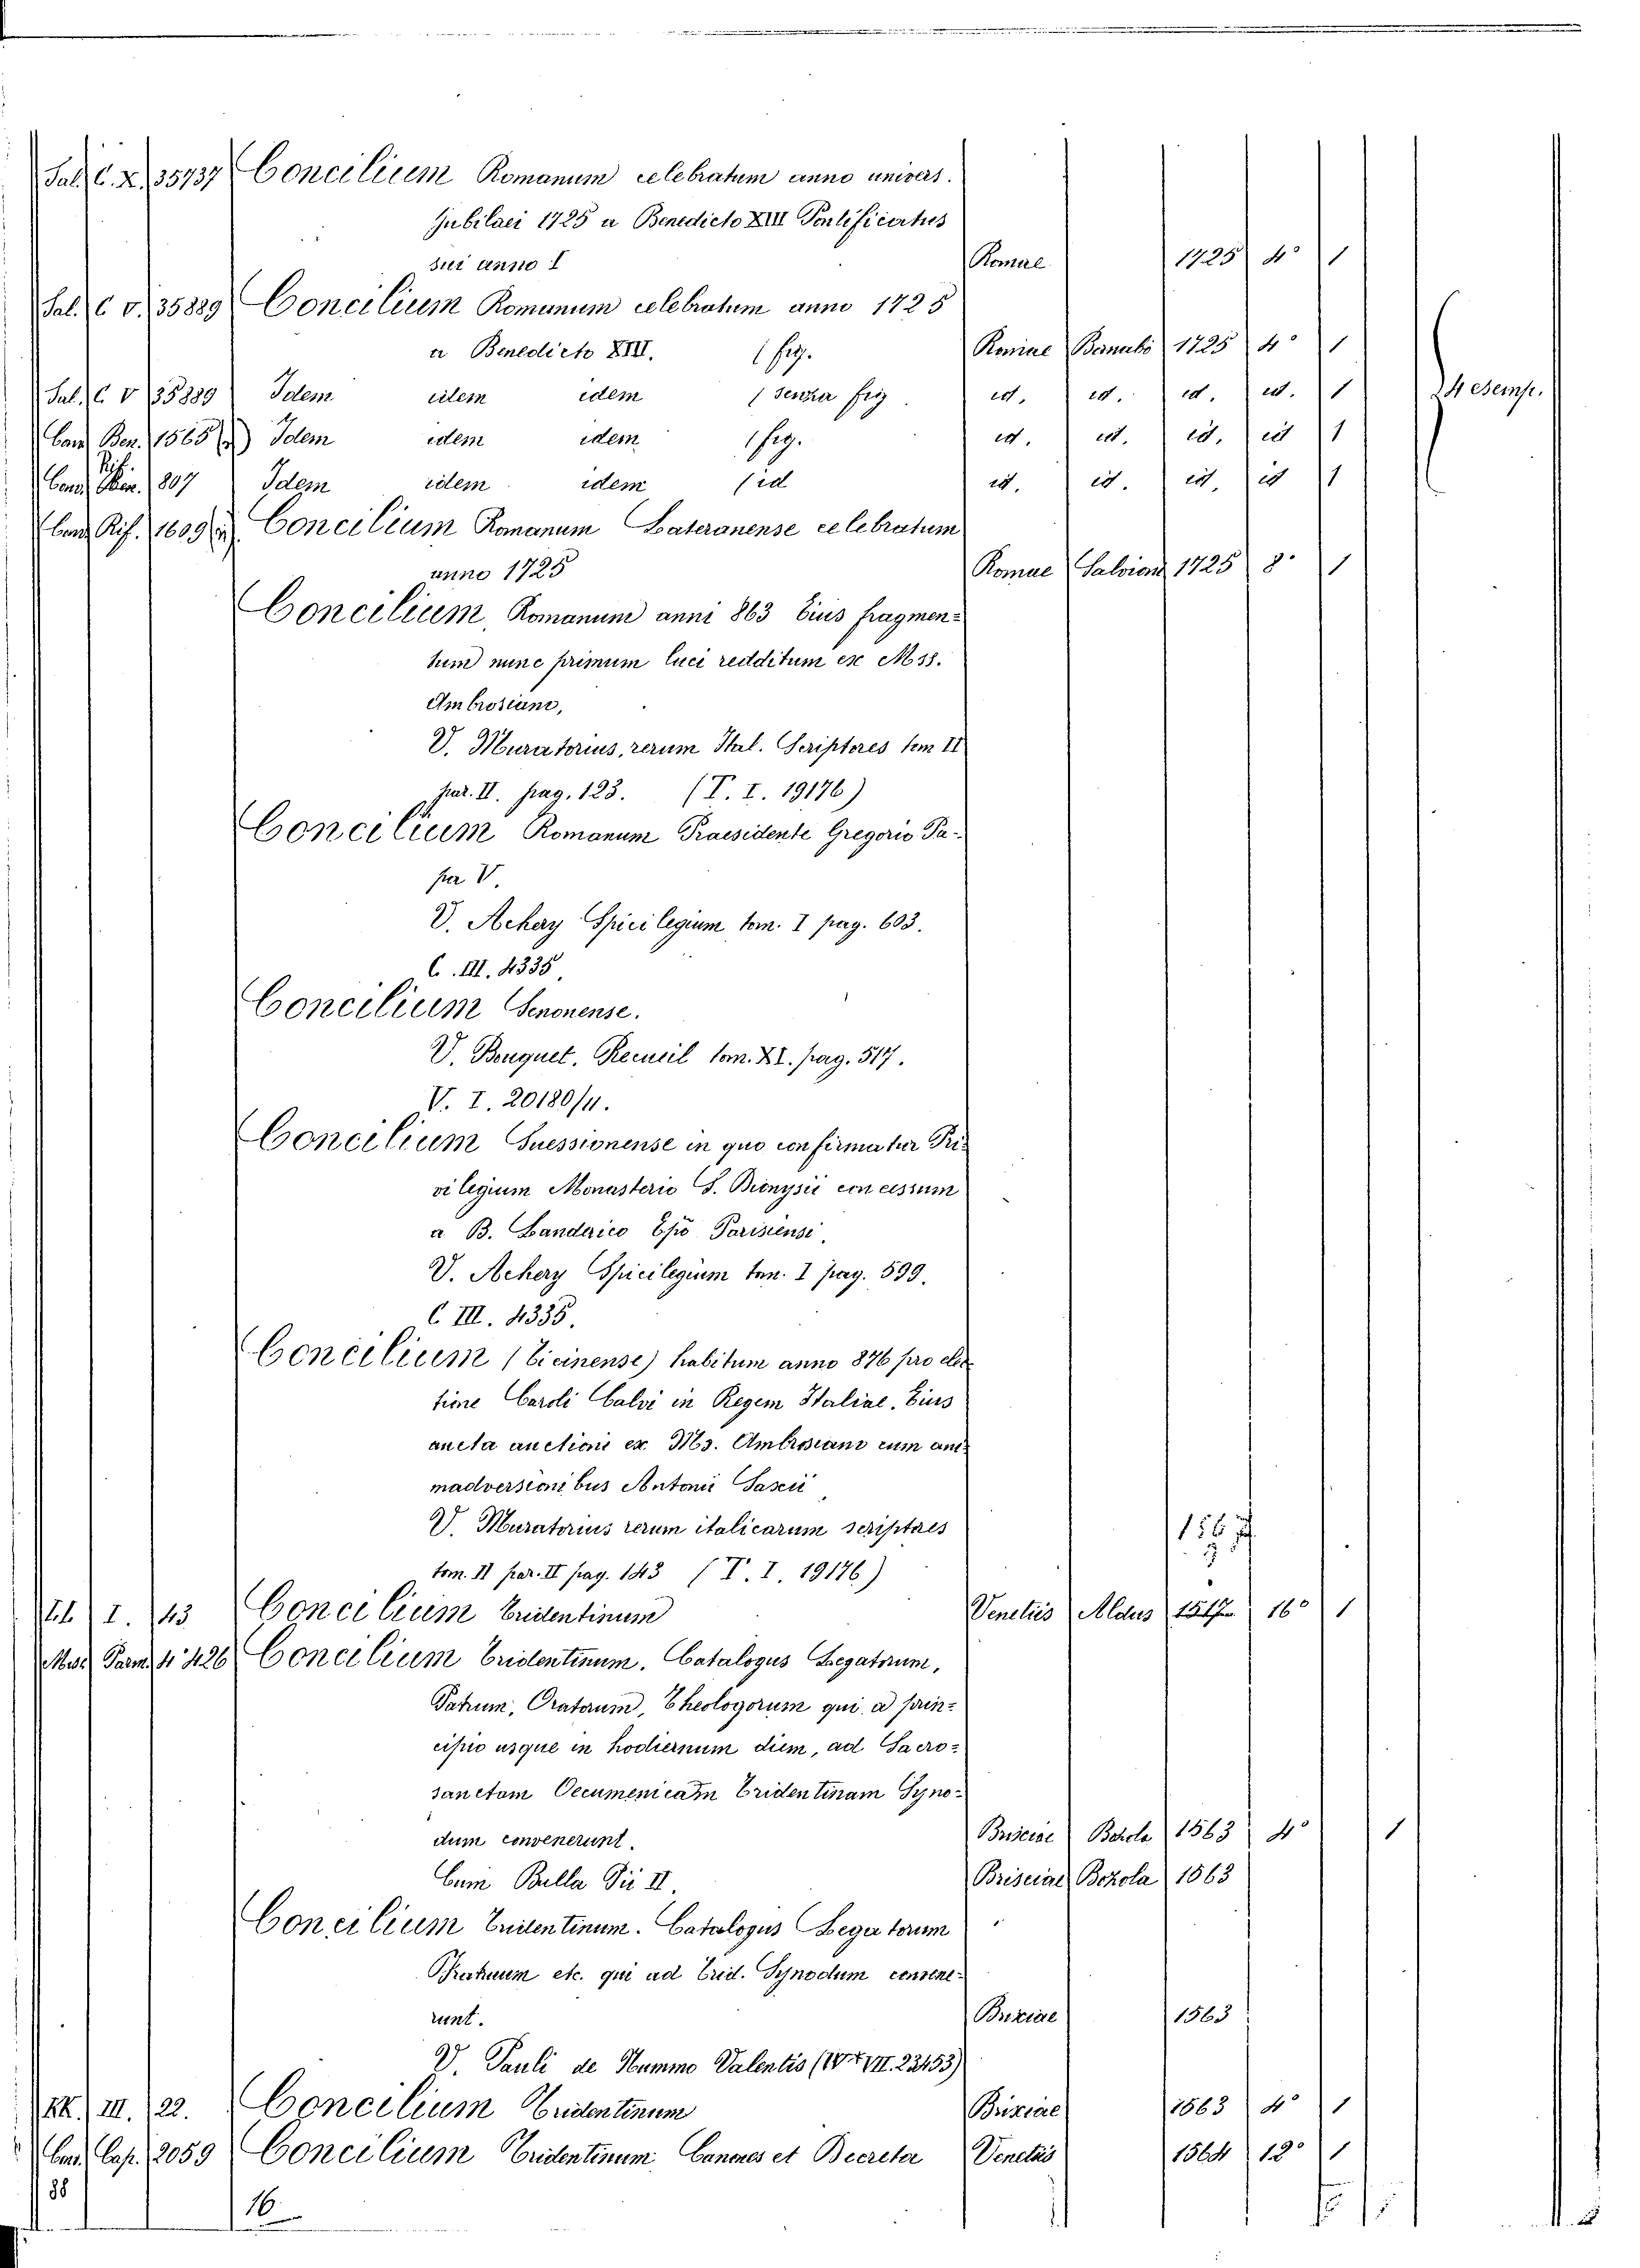 Sal. C. X. 35737 Concilium Romanum celebratum anno univers.
Jubilaei 1725 a Benedicto XIII Pontificatus
sui anno I Romae 1725 4° 1
Sal. C V. 35889 Concilium Romanum celebratum anno 1725
a Benedicto XIII. (fig. Romae Bernabò 1725 4° 1
Sal. C V 35889 Idem idem idem (senza fig. id. id. id. id. 1 4 esemp.
Cam Ben. 1565 Idem idem idem (fig. id. id. id. id 1
Rif.
Cam 807 Idem idem idem (id id. id. id. id 1
Cam Rif. 1609 Concilium Romanum Lateranense celebratum
anno 1725 Romae Salvioni 1725 8° 1
Concilium Romanum anni 863 Eius fragmen=
tum nunc primum luci redditum ex Mss.
Ambrosiano,
V. Muratorius, rerum Ital. Scriptores tom II
par. II. pag. 123. (T. I. 19176)
Concilium Romanum Praesidente Gregorio Pa-
pa V.
V. Achery Spicilegium tom. I pag. 603.
C. III. 4335
Concilium Senonense.
V. Bouquet. Recueil tom. XI. pag. 517.
V. I. 20180/11.
Concilium Suessionense in quo confirmatur Pri-
vilegium Monasterio S. Dionysii concessum
a B. Landerico Epo Parisiensi.
V. Achery Spicilegium tom. I pag. 599.
C III. 4335.
Concilium (Ticinense) habitum anno 876 pro elec
tione Caroli Calvi in Regem Italiae. Eius
aucta auctioni ex Ms. Ambrosiano cum ani=
madversionibus Antonii Saxii
V. Muratorius rerum italicarum scriptores
tom. II par. II pag. 143 (T. I. 19176)
I. 43 Concilium Tridentinum Venetiis Aldus 16° 1
Mss Parm. 4° 426 Concilium Tridentinum. Catalogus Legatorum,
Patrum, Oratorum, Theologorum qui a prin=
cipio usque in hodiernum diem, ad Sacro=
sanctam Oecumenicam Tridentinam Syno=
dum convenerunt. Brisciae Bozola 1563 4° 1
Cum Bulla Pii II. Brisciae Bozola 1563
Concilium Tridentinum. Catalogus Legatorum
Patruum etc. qui ad Trid. Synodum convene-
runt. Brixiae 1563
V. Pauli de Nummo Valentis (VII. 23453)
KK. III. 22. Concilium Tridentinum Brixiae 1563 4° 1
Cas. Cap. 2059 Concilium Tridentinum Canones et Decreta Venetiis 1564 12° 1
88
16